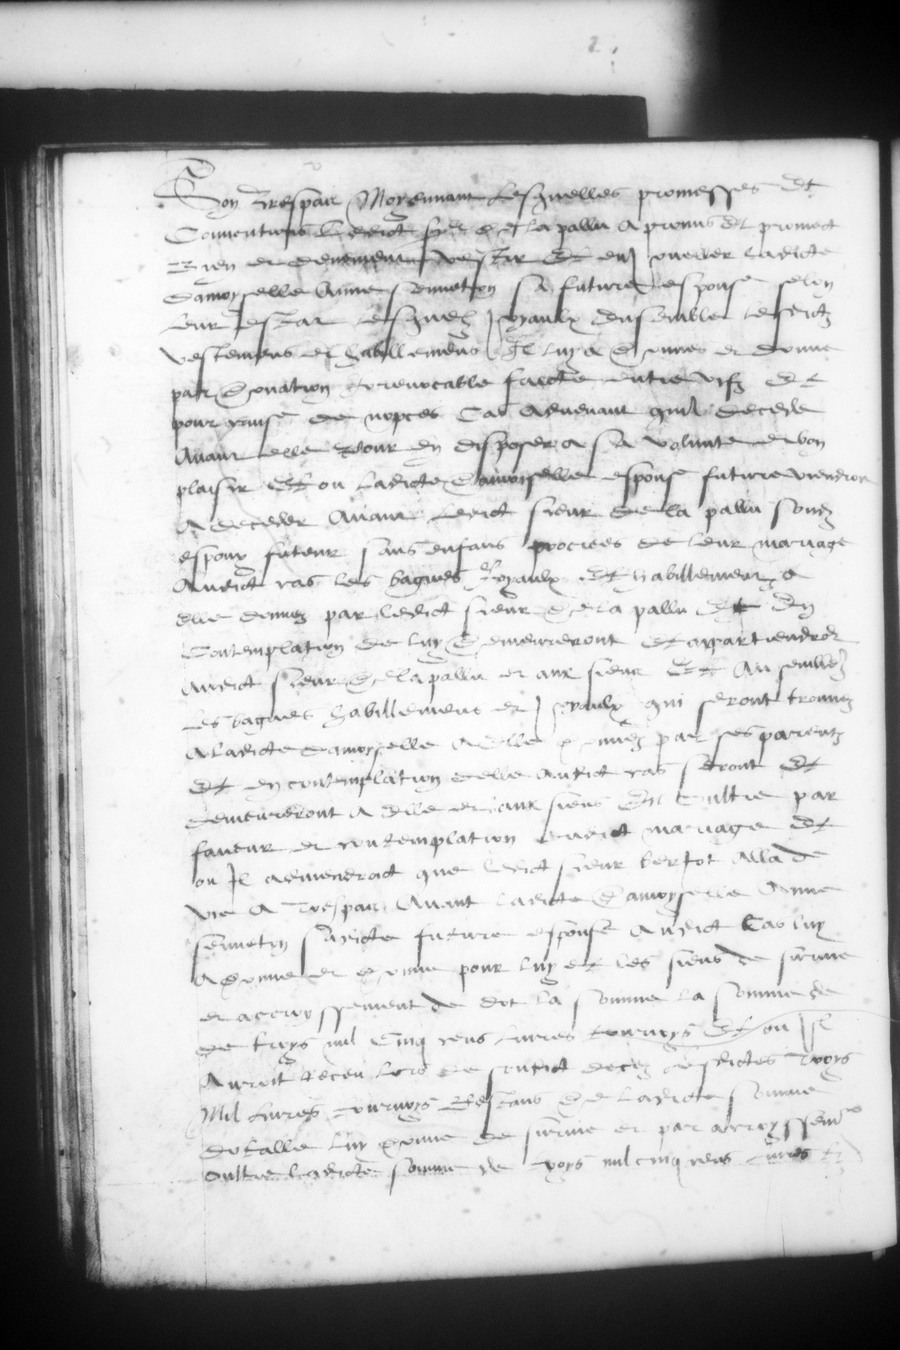 Son trespas Moyennant lesquelles promesses et
Conventions ledict sr de la pallu a promis et promect
bien et deuement vestir et en joueller ladicte
damoyselle Anne sennetoy sa future espouse selon
leur estat lesquelz joyaulx ensemble lesdictz
vestemens et habillemens Il luy a donnes et donne
par donation irrevocable faicte entre vifz et
pour cause de nopces Cas advenant quil decede
Avant elle pour en disposer a sa volunte et bon
plaisir Et ou ladicte damoyselle espouse future viendroit
a deceder Avant ledict sieur de la pallu sond
espoux futeur sans enfans procrees de leur mariage
Audict cas les bagues joyaulx et habillemens a
elle donnez par ledict sieur de la pallu et en
Contemplation de luy demeureront et appartiendront
Audict sieur de la pallu et aux siens Et
les bagues habillemens et joyaulx qui seront trouvez
a ladicte damoyselle a elle donnez par ses parentz
et en contemplation delle audict cas seront et
demeureront a elle et aux siens En oultre par
faveur et contemplation dudict mariage et
ou Il adviendroit que ledict sieur bertot alla de
vie a trespas Avant ladicte damoyselle Anne
sennetoy sadicte future espouse Audict Cas luy
a donne et donne pour luy et les siens de survie
et accroyssement de dot la somme la somme de
de troys mil cinq cens livres tournoys Et ou Il
Auroit receu lors de soudict deces lesdictes troys
Mil livres tournoys restans de ladicte somme
dotalle luy donne de survie et par accroyssemt
oultre ladicte somme de troys mil cinq cens livres tz